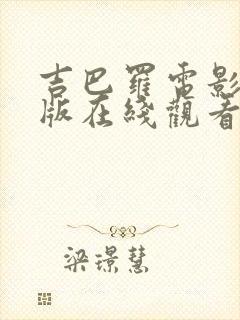 吉巴羅電影
版在綫觀看
梁璟慧